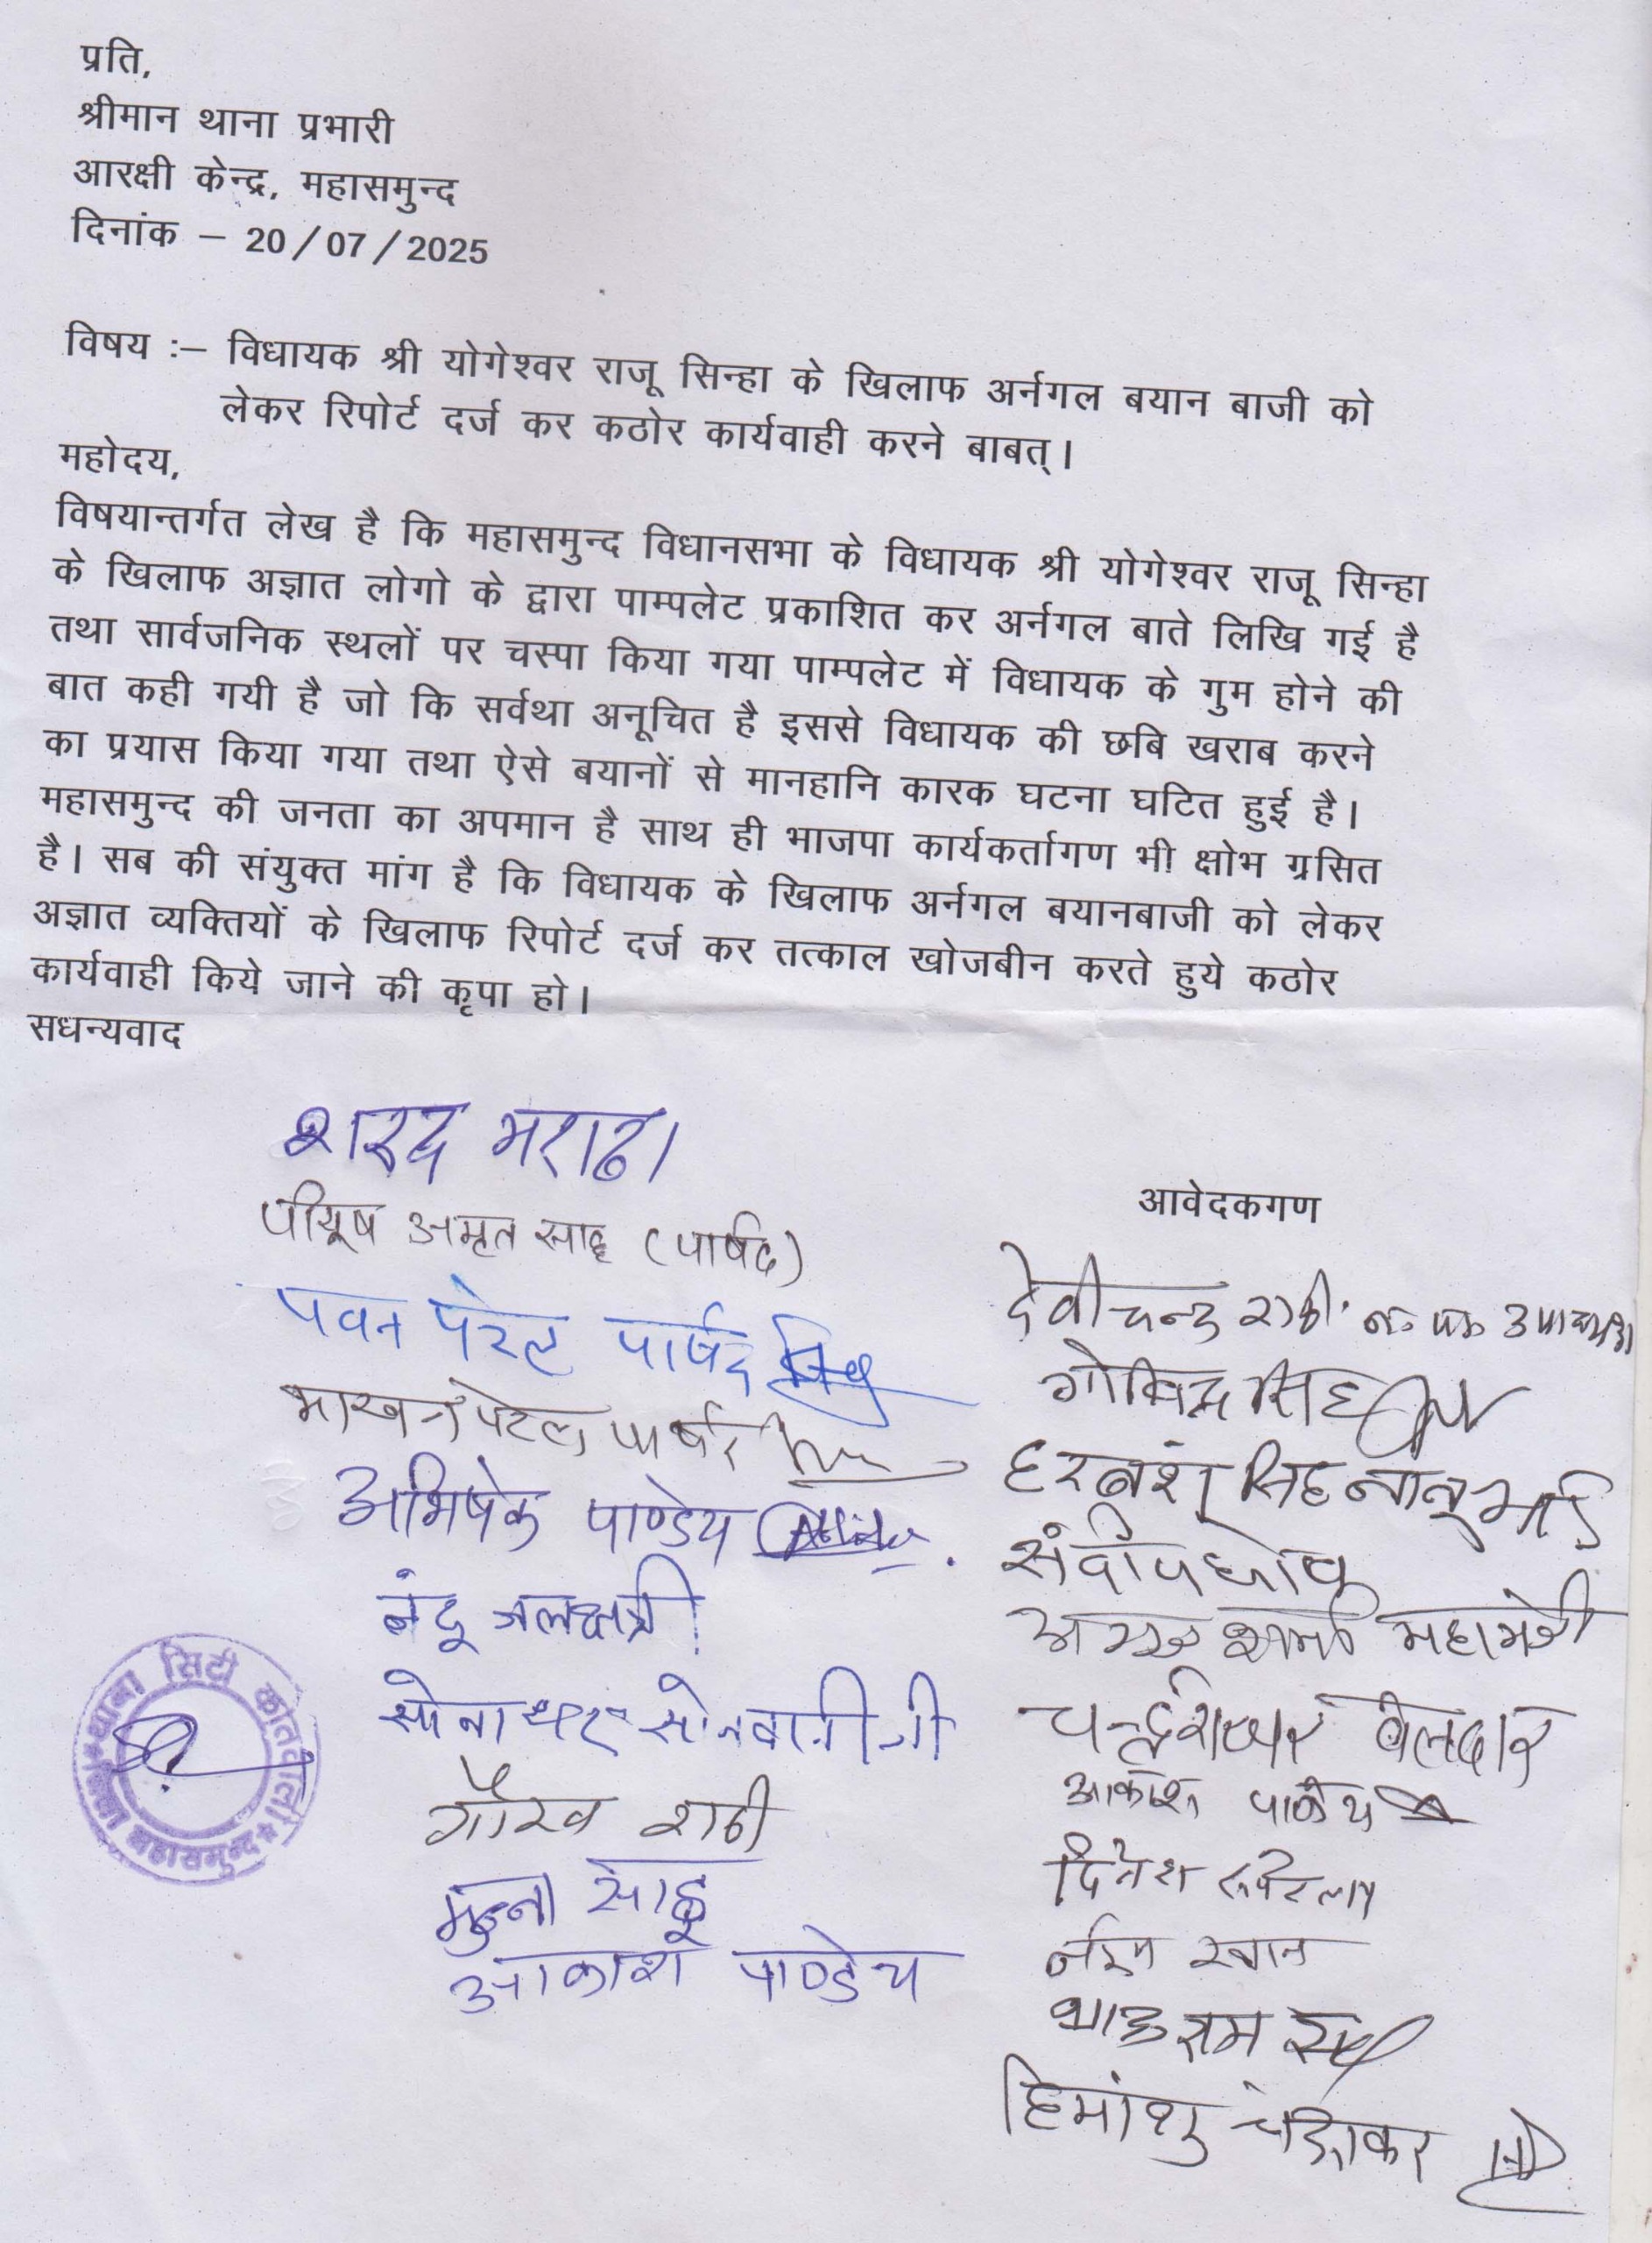 प्रति,
श्रीमान थाना प्रभारी
आरक्षी केन्द्र, महासमुन्द
दिनांक – 20/07/2025
विषय :– विधायक श्री योगेश्वर राजू सिन्हा के खिलाफ अर्नगल बयान बाजी को
लेकर रिपोर्ट दर्ज कर कठोर कार्यवाही करने बाबत्।
महोदय,
विषयान्तर्गत लेख है कि महासमुन्द विधानसभा के विधायक श्री योगेश्वर राजू सिन्हा
के खिलाफ अज्ञात लोगो के द्वारा पाम्पलेट प्रकाशित कर अर्नगल बाते लिखि गई है
तथा सार्वजनिक स्थलों पर चस्पा किया गया पाम्पलेट में विधायक के गुम होने की
बात कही गयी है जो कि सर्वथा अनूचित है इससे विधायक की छबि खराब करने
का प्रयास किया गया तथा ऐसे बयानों से मानहानि कारक घटना घटित हुई है।
महासमुन्द की जनता का अपमान है साथ ही भाजपा कार्यकर्तागण भी क्षोभ ग्रसित
है। सब की संयुक्त मांग है कि विधायक के खिलाफ अर्नगल बयानबाजी को लेकर
अज्ञात व्यक्तियों के खिलाफ रिपोर्ट दर्ज कर तत्काल खोजबीन करते हुये कठोर
कार्यवाही किये जाने की कृपा हो।
सधन्यवाद
शरद मराठा
पीयूष अमृत साहू (पार्षद)
पवन पटेल पार्षद
माखन पटेल पार्षद
अभिषेक पाण्डेय
नंदू जलक्षत्री
सोनाधर सोनवानी
गौरव राठी
मुन्ना साहू
आकाश पाण्डेय
आवेदकगण
देवीचन्द राठी
गोविन्द सिंह
हरबंश सिंह
संदीप घोष
शर्मा महामंत्री
चन्द्रशेखर बेलदार
आकाश पाण्डेय
दिनेश
खान
हिमांशु चंद्राकर
थाना सिटी कोतवाली
महासमुन्द